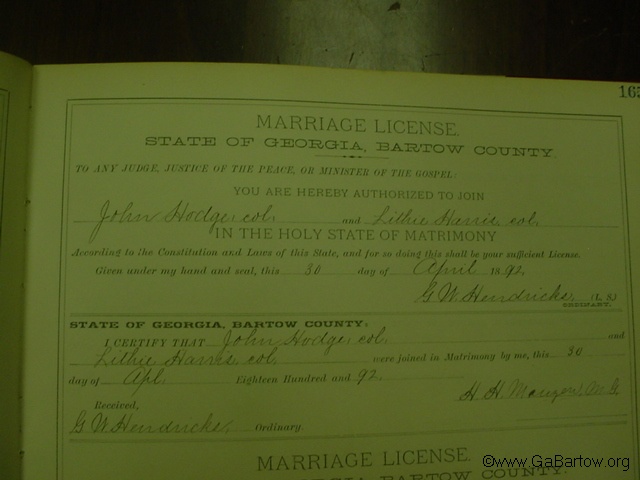 MARRIAGE LICENSE.
STATE OF GEORGIA, BARTOW COUNTY.
TO ANY JUDGE, JUSTICE OF THE PEACE, OR MINISTER OF THE GOSPEL:
YOU ARE HEREBY AUTHORIZED TO JOIN
John Hodge, col. and Lithie Harris col.
IN THE HOLY STATE OF MATRIMONY
According to the Constitution and Laws of this State, and for so doing this shall be your sufficient License.
Given under my hand and seal, this 30 day of April 1892.
G W Hendricks, (L. S.)
ORDINARY.
STATE OF GEORGIA, BARTOW COUNTY:
I CERTIFY THAT John Hodge, col. and
Lithie Harris col. were joined in Matrimony by me, this 30
day of Apl. Eighteen Hundred and 92.
H. H. M.G.
Received,
G W Hendricks, Ordinary.
MARRIAGE LICENSE.
GEORGIA, BARTOW COUNTY.
©www.GaBartow.org